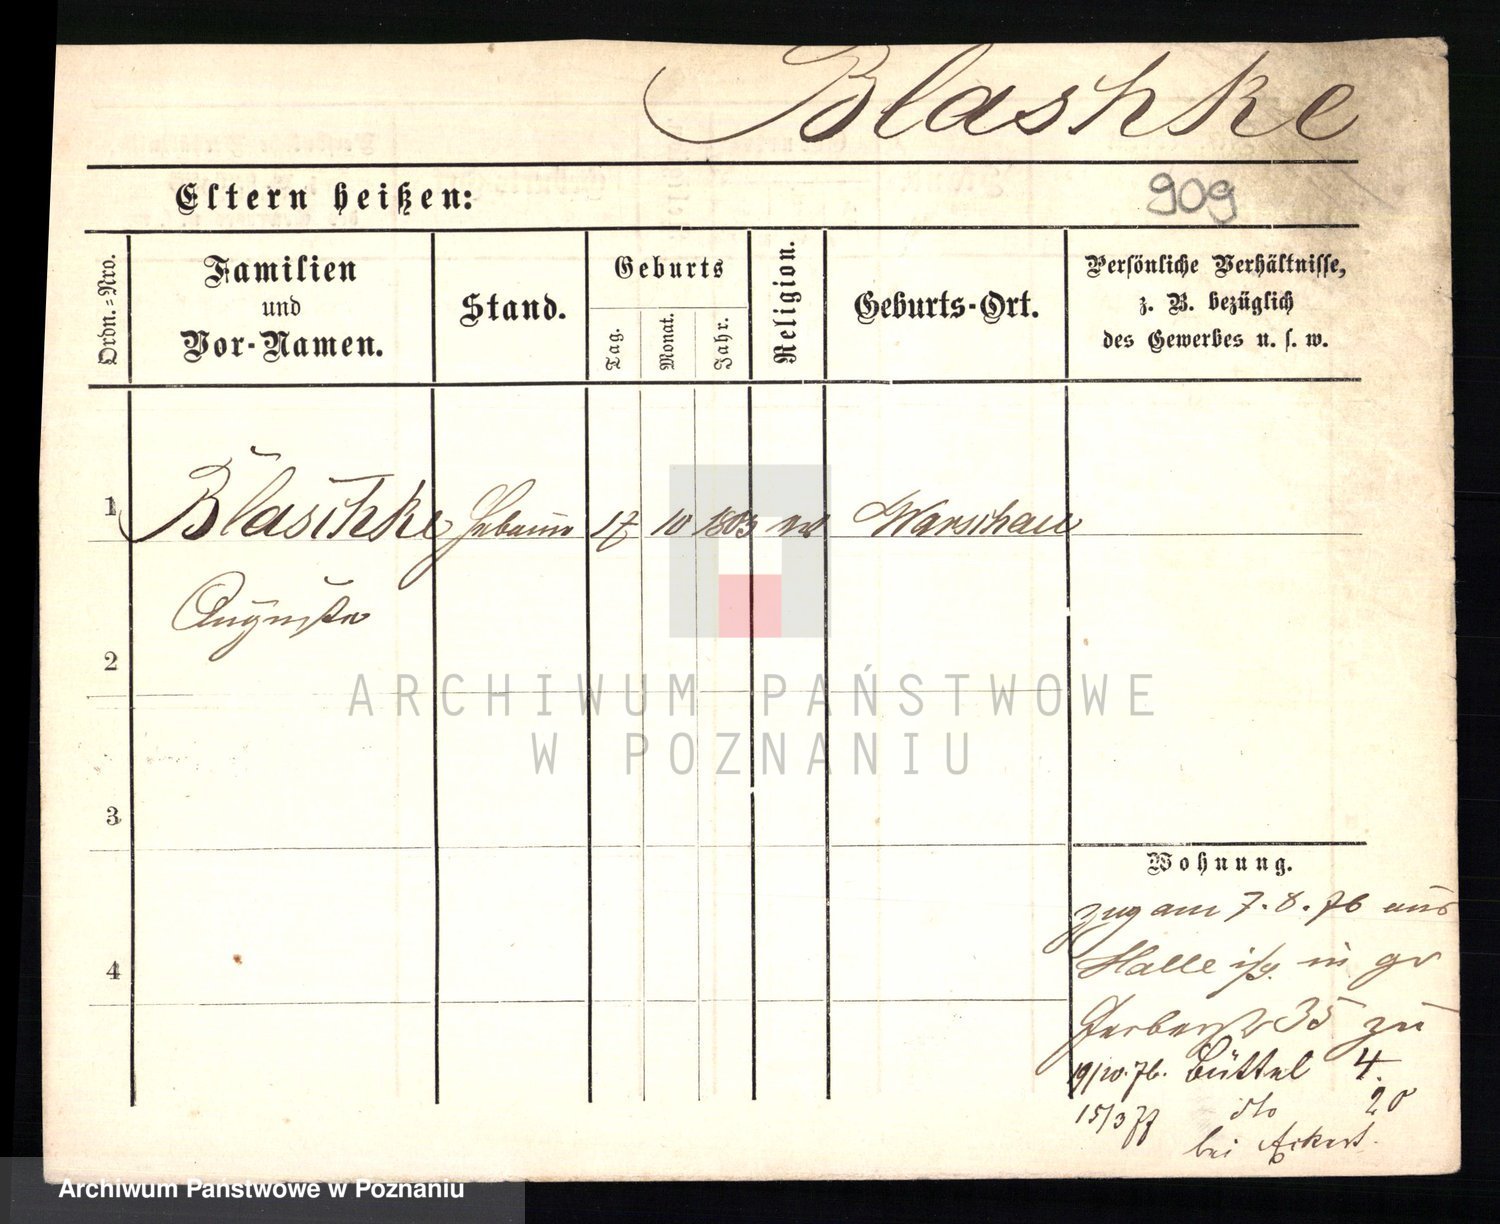 Blaschke
Eltern heißen:
909
Ordn.=Nro.
Familien
und
Vor-Namen.
Stand.
Geburts
Tag.
Monat.
Jahr.
Religion.
Geburts-Ort.
Persönliche Verhältnisse,
z. B. bezüglich
des Gewerbes u. s. w.
1
Blaschke
17
10
1803
Warschau
Auguste
2
ARCHIWUM PAŃSTWOWE
W POZNANIU
3
Wohnung.
zug am 7.8.76 aus
Halle in gr
Gerberstr 35 zu
4
19/10.76. Büttel 4.
15/3 77 dto 20
bei
Archiwum Państwowe w Poznaniu